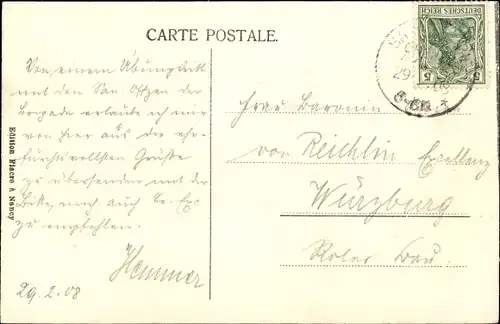 CARTE POSTALE.
DEUTSCHES REICH
5 5
Von einem Übungsritt
mit den San. Offzen der
Brigade erlaube ich mir
von hier aus die ehr-
furchtsvollsten Grüße
zu übersenden mit der
Bitte, mich auch Sr. Ex.
zu empfehlen.
Hammer
29.2.08
Frau Baronin
von Reichlin Exzellenz
Würzburg
Roter Bau.
Edition Fiacre à Nancy